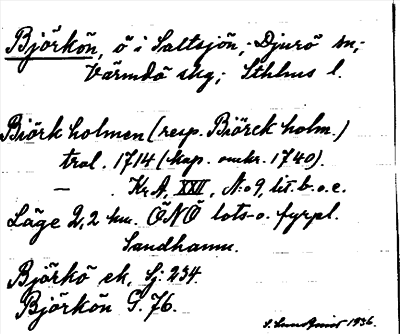 Björkön, ö i Saltsjön, Djurö sn,
Värmdö skg, Sthlms l.
Biörk holmen (resp. Biörck holm.)
trol. 1714 (kap. omkr. 1740).
— Kr.A, XXII, N:o 9, lit. b. o. c.
Läge 2,2 km. ÖNÖ lots- o. fyrpl.
Sandhamn.
Björkö ek, Sj: 234.
Björkön G. 76.
1936.